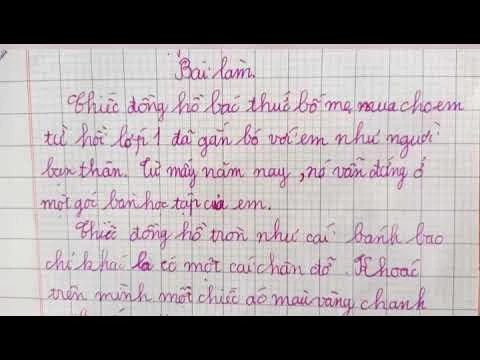 Bài làm.
Chiếc đồng hồ báo thức bố mẹ mua cho em
từ hồi lớp 1 đã gắn bó với em như người
bạn thân. Từ mấy năm nay, nó vẫn đứng ở
một góc bàn học tập của em.
Chiếc đồng hồ tròn như cái bánh bao
chỉ khác là có một cái chân đỡ. Khoác
trên mình một chiếc áo màu vàng chanh